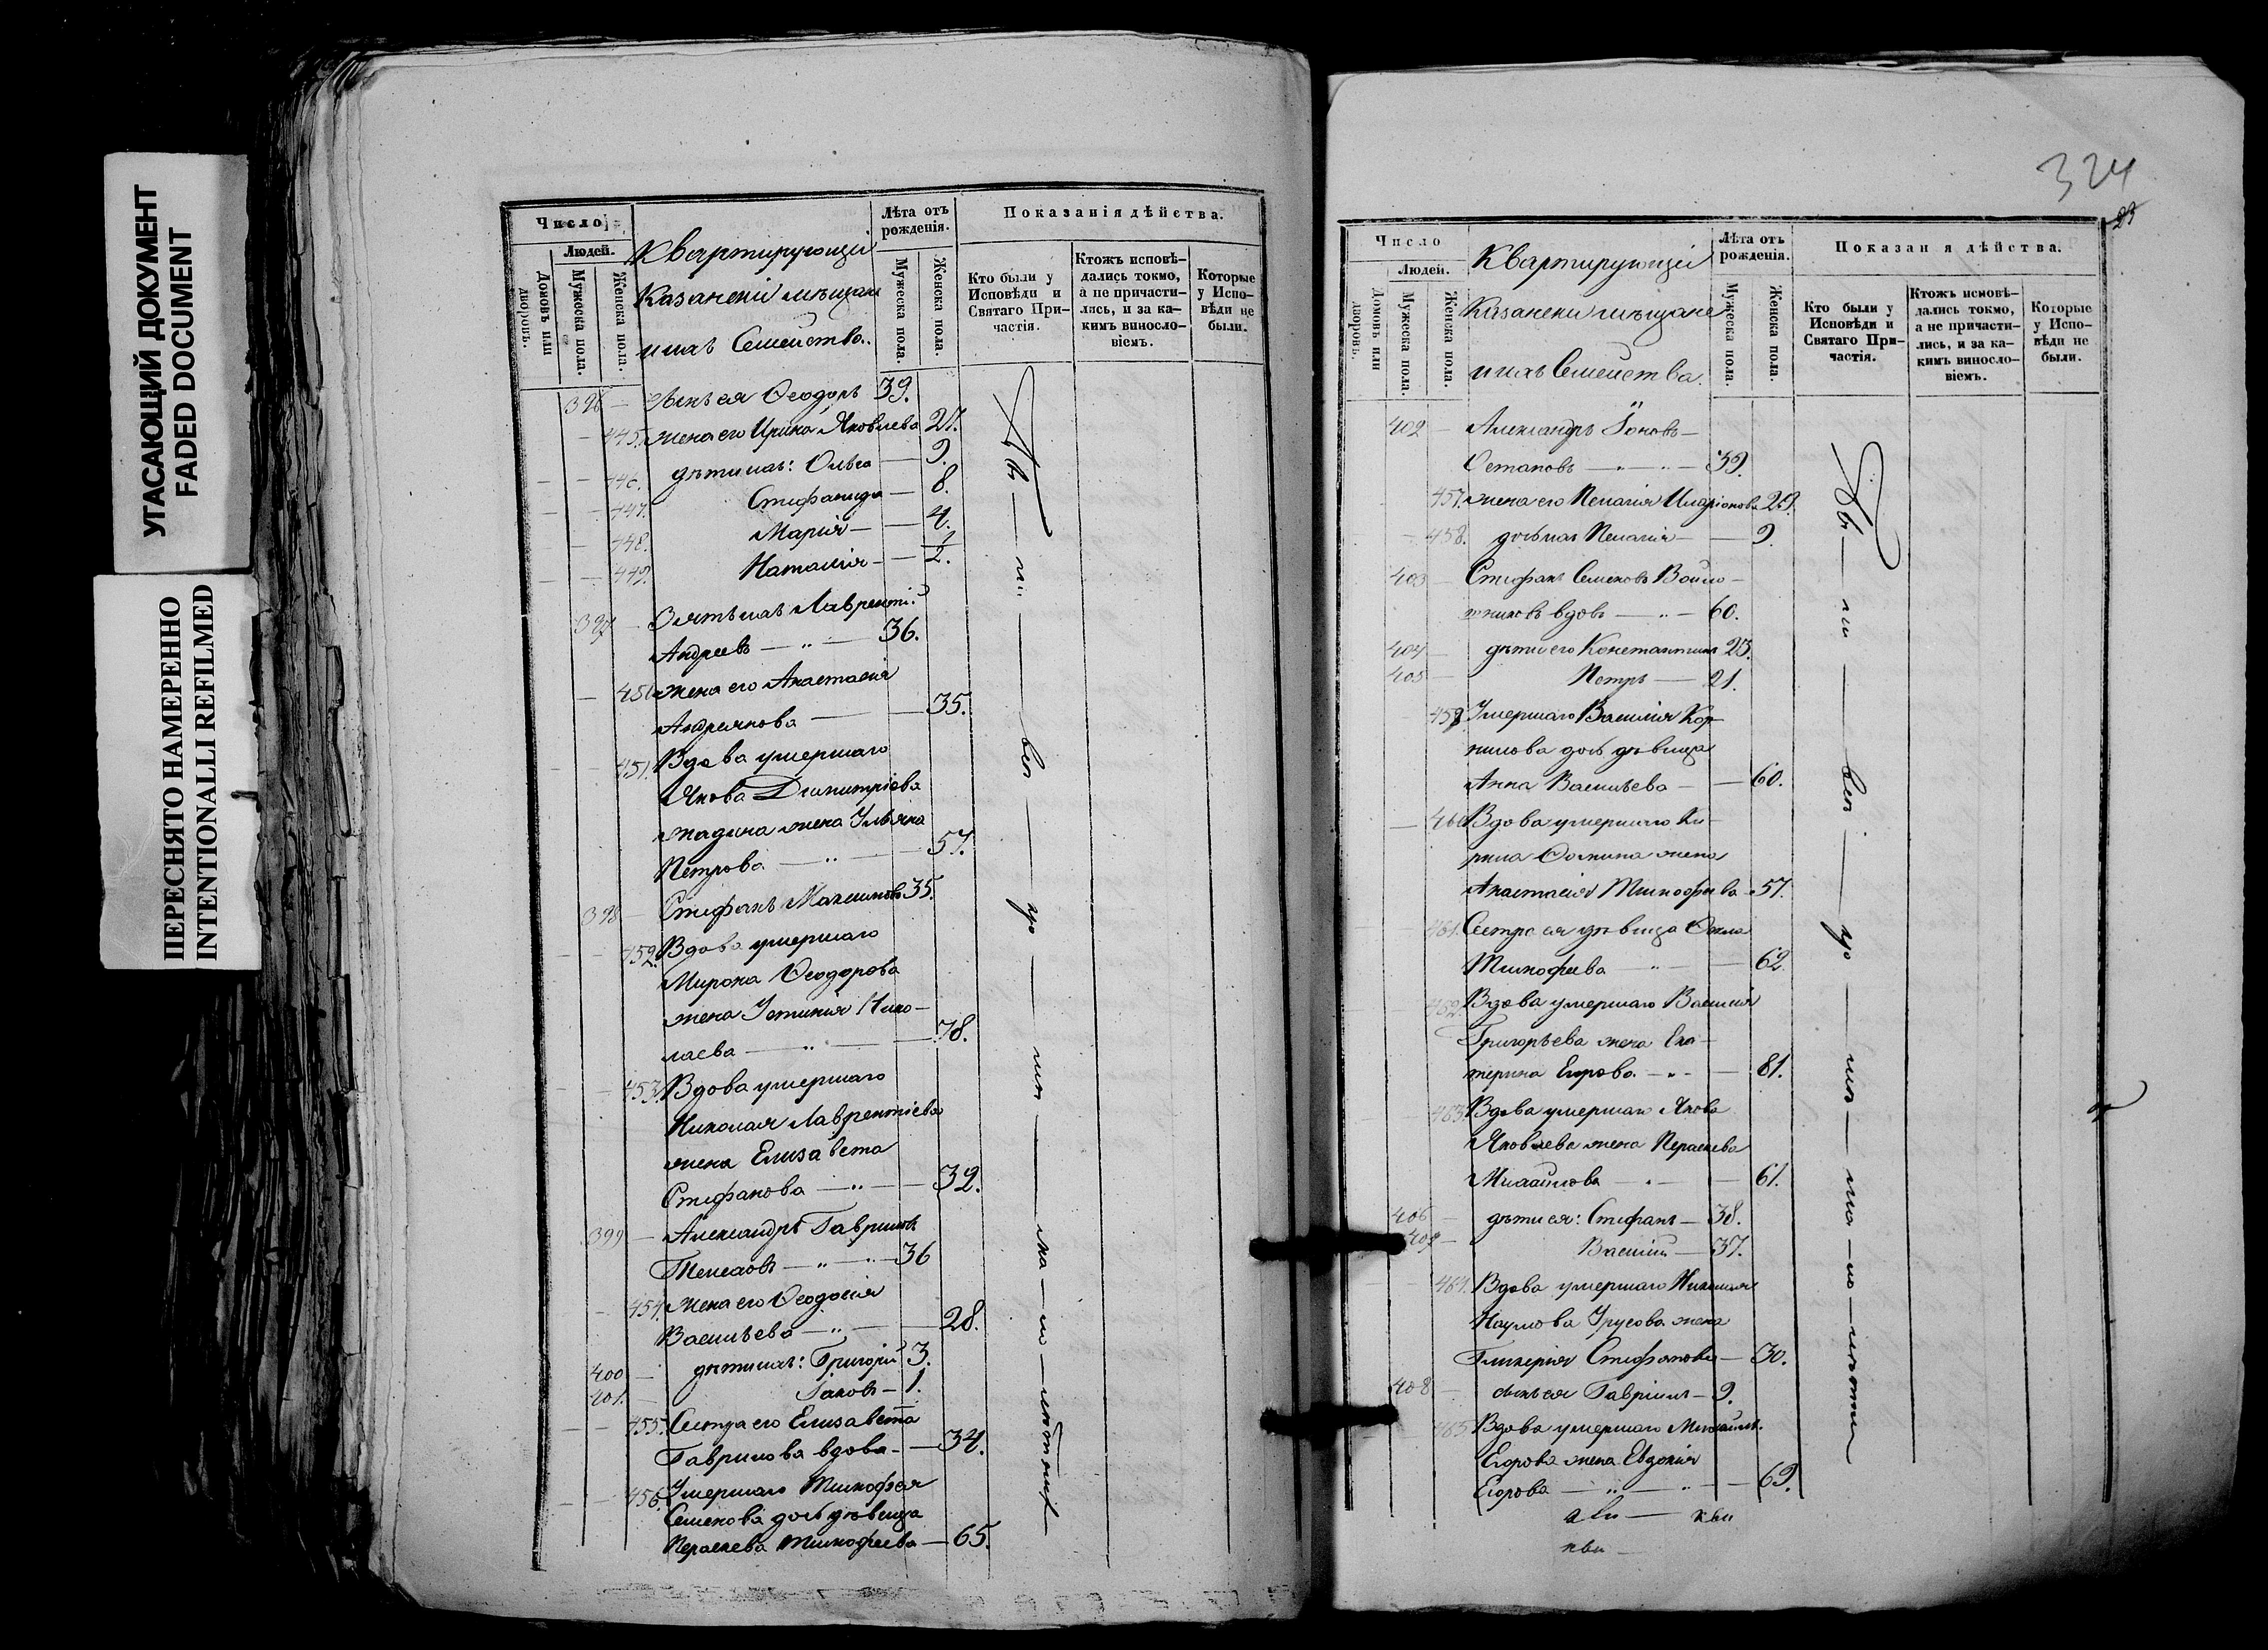 УГАСАЮЩИЙ ДОКУМЕНТ
FADED DOCUMENT
ПЕРЕСНЯТО НАМЕРЕННО
INTENTIONALLI REFILMED
Число
Людей.
Домовъ или дворовъ.
Мужеска пола.
Женска пола.
Квартирующіи
Казанскіи мѣщане
и ихъ Семейства.
Лѣта отъ рожденія.
Мужеска пола.
Женска пола.
Показанія дѣйства.
Кто были у Исповѣди и Святаго Причастія.
Ктожъ исповѣдались токмо, а не причастились, и за какимъ винословіемъ.
Которые у Исповѣди не были.
396 — сынъ ея Ѳеодоръ 39.
445. жена его Ирина Яковлева 27.
446. дѣти ихъ: Ольга — 9.
447. Стефанида — 8.
448. Марія — 4.
449. Наталія — 1/2.
397 — Зять ихъ Лаврентій
Андреевъ — 36.
450 жена его Анастасія
Андреянова — 35.
451. Вдова умершаго
Якова Димитріева
жена Ульяна
Петрова — 57.
398 — Стефанъ Максимовъ 35.
452. Вдова умершаго
Мирона Ѳеодорова
жена Устинія Нико-
лаева — 78.
453. Вдова умершаго
Николая Лаврентіева
жена Елизавета
Стефанова — 32.
399 — Александръ Гавриловъ
— 36
454. жена его Ѳеодосія
Васильева — 28.
400 — дѣти ихъ: Григорій 3.
401. — Іаковъ — 1.
455. Сестра его Елизавета
Гаврилова вдова — 34.
456. Умершаго Тимофея
Семенова дочь дѣвица
Параскева Тимофеева — 65.
324
23
Число
Людей.
Домовъ или дворовъ.
Мужеска пола.
Женска пола.
Квартирующіи
Казанскіи мѣщане
и ихъ Семейства.
Лѣта отъ рожденія.
Мужеска пола.
Женска пола.
Показан я дѣйства.
Кто были у Исповѣди и Святаго Причастія.
Ктожъ исповѣдались токмо, а не причастились, и за какимъ винословіемъ.
Которые у Исповѣди не были.
402 — Александръ
Остаповъ — 39.
457. жена его Пелагія Иларіонова 29.
458. дочь ихъ Пелагія — 9
403 — Стефанъ Семеновъ
вдовъ — 60.
404 — дѣти его Константинъ 23.
405 — Петръ — 21.
459 Умершаго Василія Кор-
нилова дочь дѣвица
Анна Васильева — 60.
460 Вдова умершаго Ки-
рила Ѳомина жена
Анастасія Тимофеева 57.
461. Сестра ея дѣвица Ѳекла
Тимофеева — 62.
462. Вдова умершаго Василія
Григорьева жена Ека-
терина Егорова — 81.
463. Вдова умершаго Якова
Яковлева жена Параскева
Михайлова — 61.
406 — дѣти ея: Стефанъ — 38.
407 — Василій — 37.
464. Вдова умершаго Николая
Наумова Урусова жена
Гликерія Стефанова — 30.
408 — сынъ ея Гавріилъ — 9.
465 Вдова умершаго Михаила
Егорова жена Евдокія
Егорова — 69.